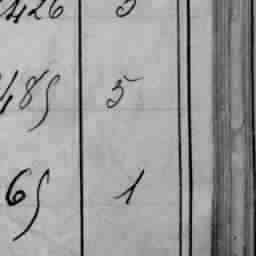 426 5
485 5
65 1